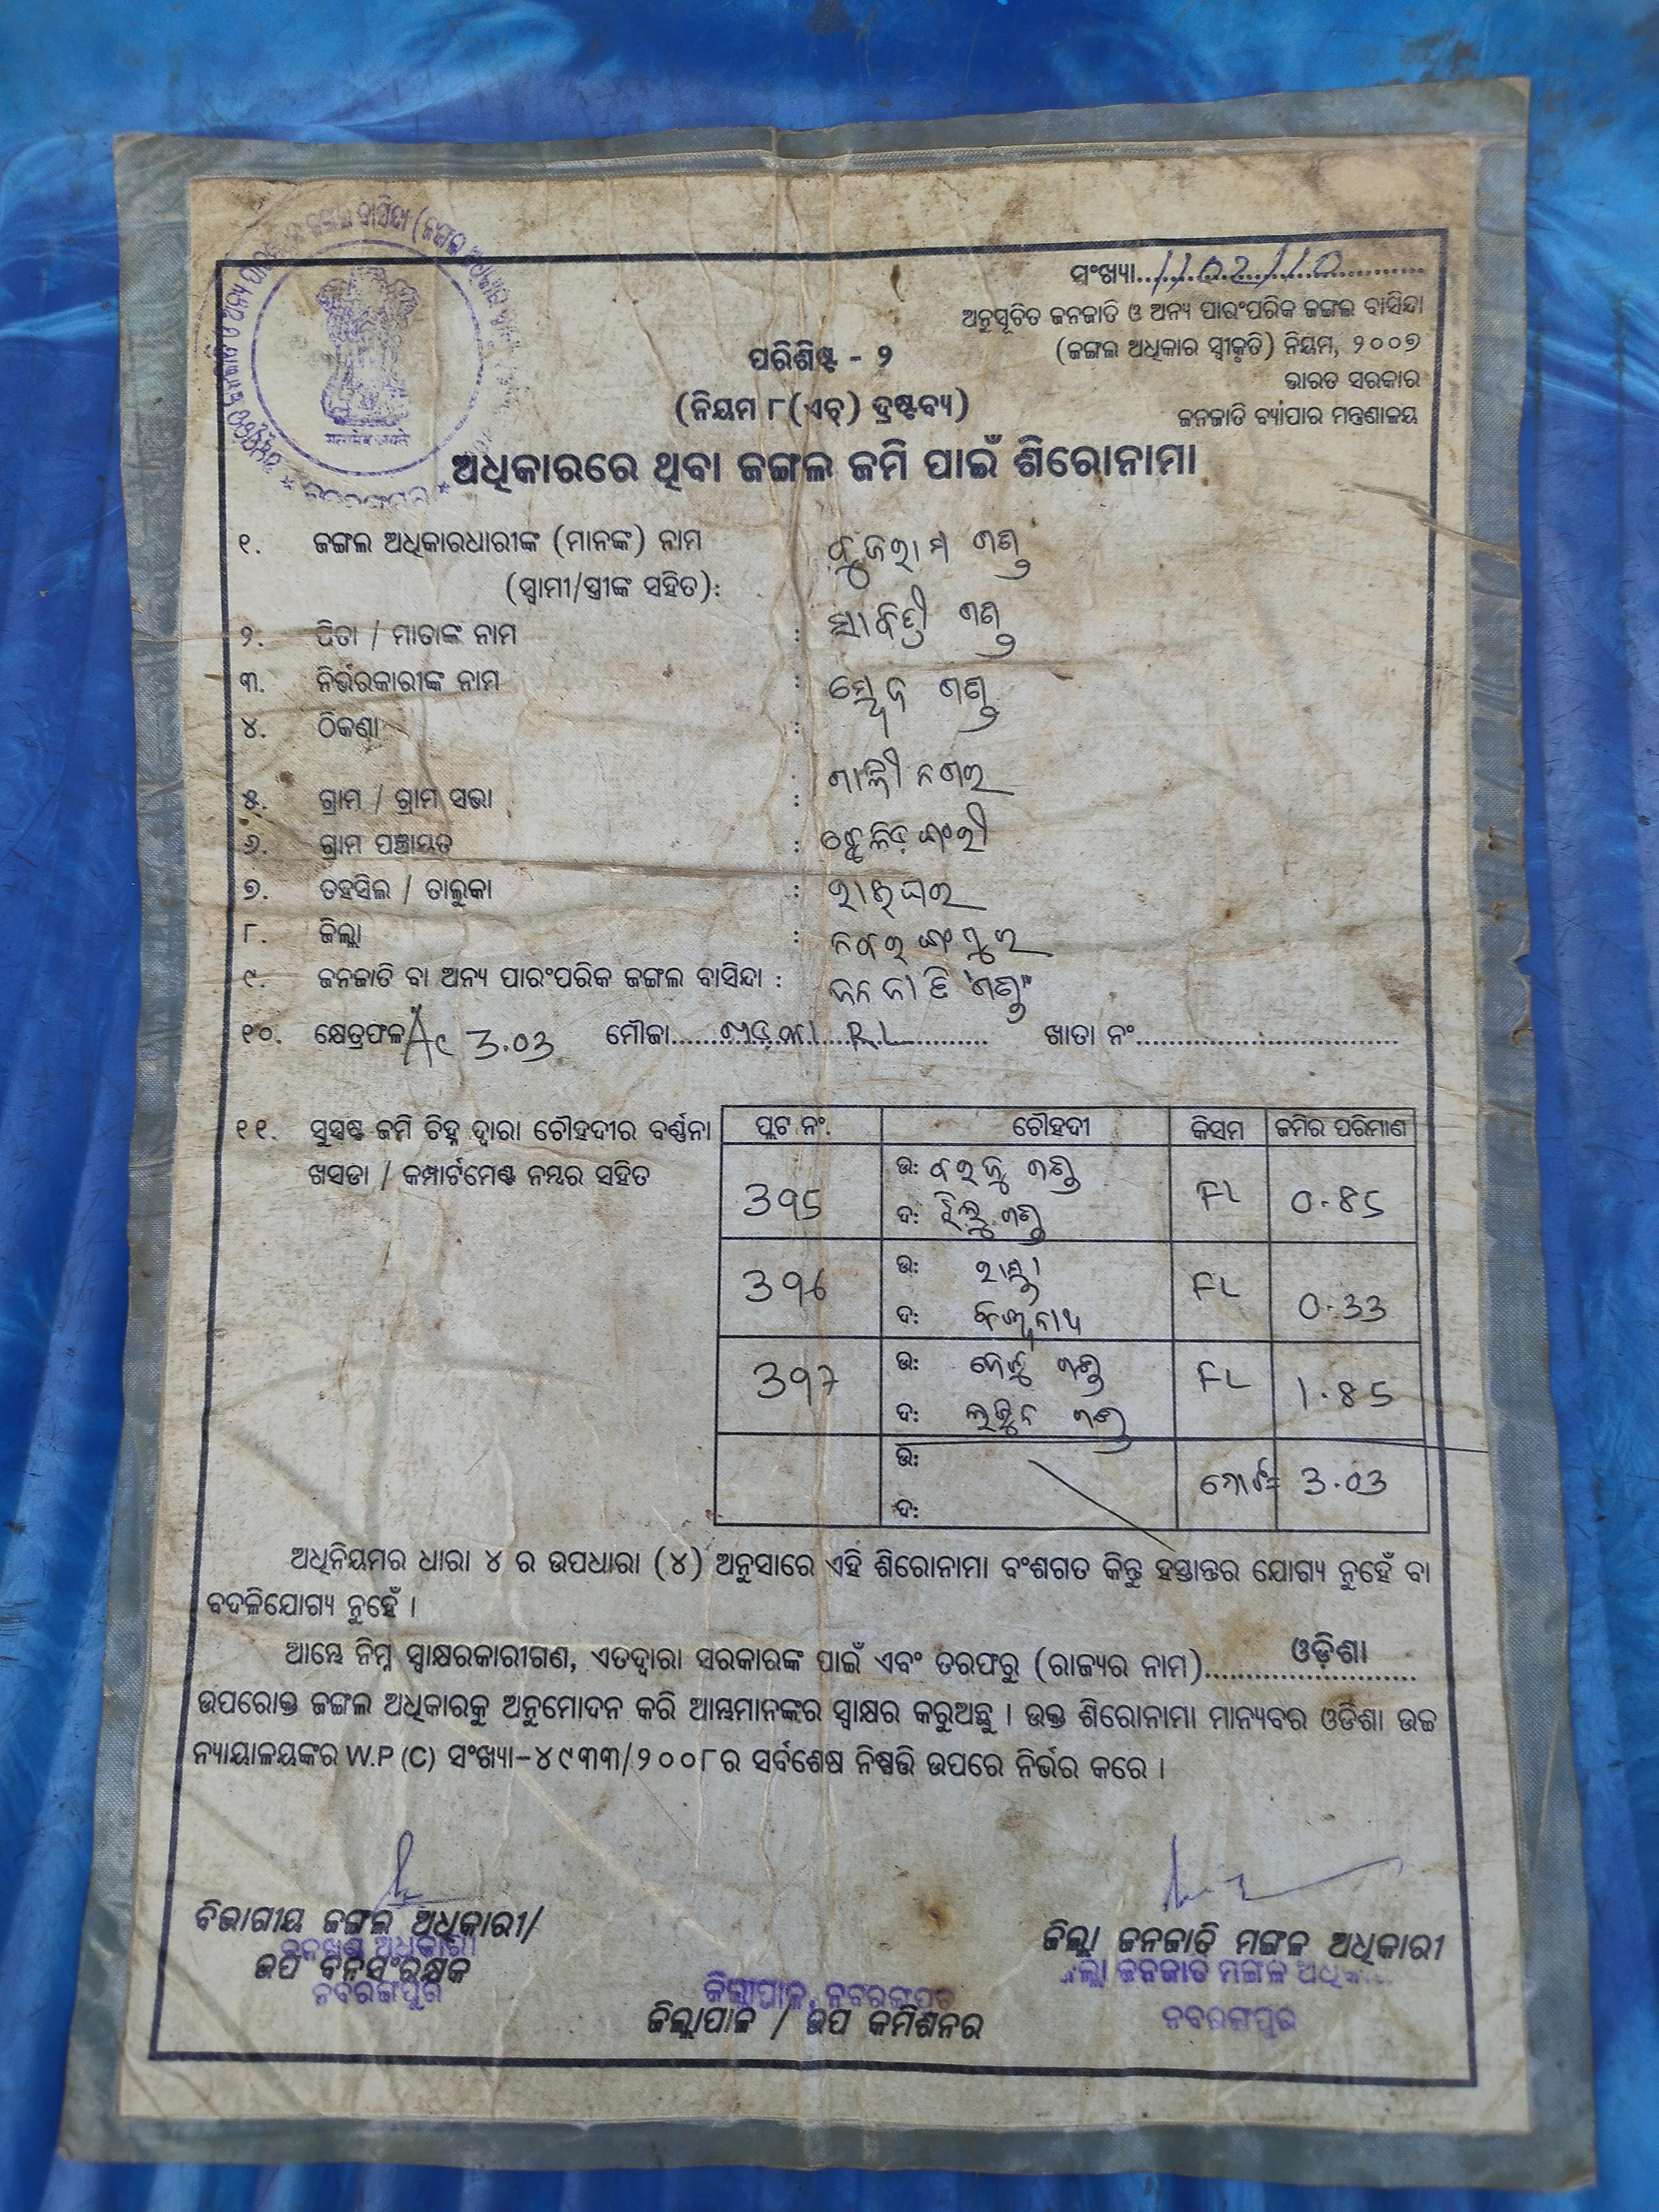 ସଂଖ୍ୟା 1102/10
ଅନୁସୂଚିତ ଜନଜାତି ଓ ଅନ୍ୟ ପାରଂପରିକ ଜଙ୍ଗଲ ବାସିନ୍ଦା
(ଜଙ୍ଗଲ ଅଧିକାର ସ୍ୱୀକୃତି) ନିୟମ, ୨୦୦୭
ଭାରତ ସରକାର
ଜନଜାତି ବ୍ୟାପାର ମନ୍ତ୍ରଣାଳୟ
ପରିଶିଷ୍ଟ - ୨
(ନିୟମ ୮(ଏଚ୍) ଦ୍ରଷ୍ଟବ୍ୟ)
ଅଧିକାରରେ ଥିବା ଜଙ୍ଗଲ ଜମି ପାଇଁ ଶିରୋନାମା
୧. ଜଙ୍ଗଲ ଅଧିକାରଧାରୀଙ୍କ (ମାନଙ୍କ) ନାମ ଗଣ୍ଡ
(ସ୍ୱାମୀ/ସ୍ତ୍ରୀଙ୍କ ସହିତ):
୨. ପିତା / ମାତାଙ୍କ ନାମ : ଗଣ୍ଡ
୩. ନିର୍ଭରକାରୀଙ୍କ ନାମ : ଗଣ୍ଡ
୪. ଠିକଣା :
୫. ଗ୍ରାମ / ଗ୍ରାମ ସଭା :
୬. ଗ୍ରାମ ପଞ୍ଚାୟତ :
୭. ତହସିଲ / ତାଲୁକା : ରାଇଘର
୮. ଜିଲ୍ଲା : ନବରଙ୍ଗପୁର
୯. ଜନଜାତି ବା ଅନ୍ୟ ପାରଂପରିକ ଜଙ୍ଗଲ ବାସିନ୍ଦା : ଜନଜାତି "ଗଣ୍ଡ"
୧୦. କ୍ଷେତ୍ରଫଳ Ac 3.03 ମୌଜା RL ଖାତା ନଂ
୧୧. ସୁସ୍ପଷ୍ଟ ଜମି ଚିହ୍ନ ଦ୍ୱାରା ଚୌହଦୀର ବର୍ଣ୍ଣନା
ଖସଡା / କମ୍ପାର୍ଟମେଣ୍ଟ ନମ୍ବର ସହିତ
ପ୍ଲଟ ନଂ. ଚୌହଦୀ କିସମ ଜମିର ପରିମାଣ
395 ଉ: ଗଣ୍ଡ FL 0.85
ଦ: ଗଣ୍ଡ
396 ଉ: FL 0.33
ଦ:
397 ଉ: ଗଣ୍ଡ FL 1.85
ଦ: ଗଣ୍ଡ
ଉ: ମୋଟ= 3.03
ଦ:
ଅଧିନିୟମର ଧାରା ୪ ର ଉପଧାରା (୪) ଅନୁସାରେ ଏହି ଶିରୋନାମା ବଂଶଗତ କିନ୍ତୁ ହସ୍ତାନ୍ତର ଯୋଗ୍ୟ ନୁହେଁ ବା
ବଦଳିଯୋଗ୍ୟ ନୁହେଁ ।
ଆମ୍ଭେ ନିମ୍ନ ସ୍ୱାକ୍ଷରକାରୀଗଣ, ଏତଦ୍ୱାରା ସରକାରଙ୍କ ପାଇଁ ଏବଂ ତରଫରୁ (ରାଜ୍ୟର ନାମ) ଓଡ଼ିଶା
ଉପରୋକ୍ତ ଜଙ୍ଗଲ ଅଧିକାରକୁ ଅନୁମୋଦନ କରି ଆମ୍ଭମାନଙ୍କର ସ୍ୱାକ୍ଷର କରୁଅଛୁ । ଉକ୍ତ ଶିରୋନାମା ମାନ୍ୟବର ଓଡିଶା ଉଚ୍ଚ
ନ୍ୟାୟାଳୟଙ୍କର W.P (C) ସଂଖ୍ୟା-୪୯୩୩/୨୦୦୮ର ସର୍ବଶେଷ ନିଷ୍ପତ୍ତି ଉପରେ ନିର୍ଭର କରେ ।
ବିଭାଗୀୟ ଜଙ୍ଗଲ ଅଧିକାରୀ/
ଉପ ବନସଂରକ୍ଷକ
ନବରଙ୍ଗପୁର
ଜିଲ୍ଲାପାଳ, ନବରଙ୍ଗପୁର
ଜିଲ୍ଲାପାଳ / ଉପ କମିଶନର
ଜିଲ୍ଲା ଜନଜାତି ମଙ୍ଗଳ ଅଧିକାରୀ
ଜିଲ୍ଲା ଜନଜାତି ମଙ୍ଗଳ ଅଧିକାରୀ
ନବରଙ୍ଗପୁର